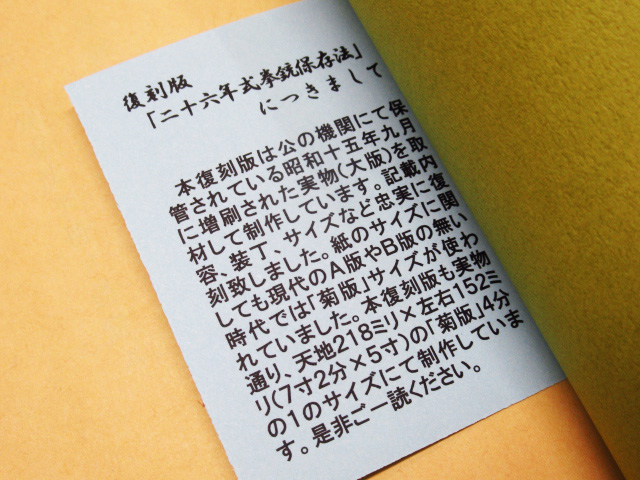 復刻版
「二十六年式拳銃保存法」
につきまして
本復刻版は公の機関にて保
管されている昭和十五年九月
に増刷された実物(大版)を取
材して制作しています。記載内
容、装丁、サイズなど忠実に復
刻致しました。紙のサイズに関
しても現代のA版やB版の無い
時代では「菊版」サイズが使わ
れていました。本復刻版も実物
通り、天地218ミリ×左右152ミ
リ(7寸2分×5寸)の「菊版」4分
の1のサイズにて制作していま
す。是非ご一読ください。